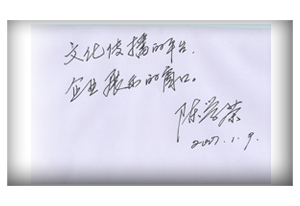 文化传播的平台.
企业展示的窗口。
陈学荣
2007.1.9.